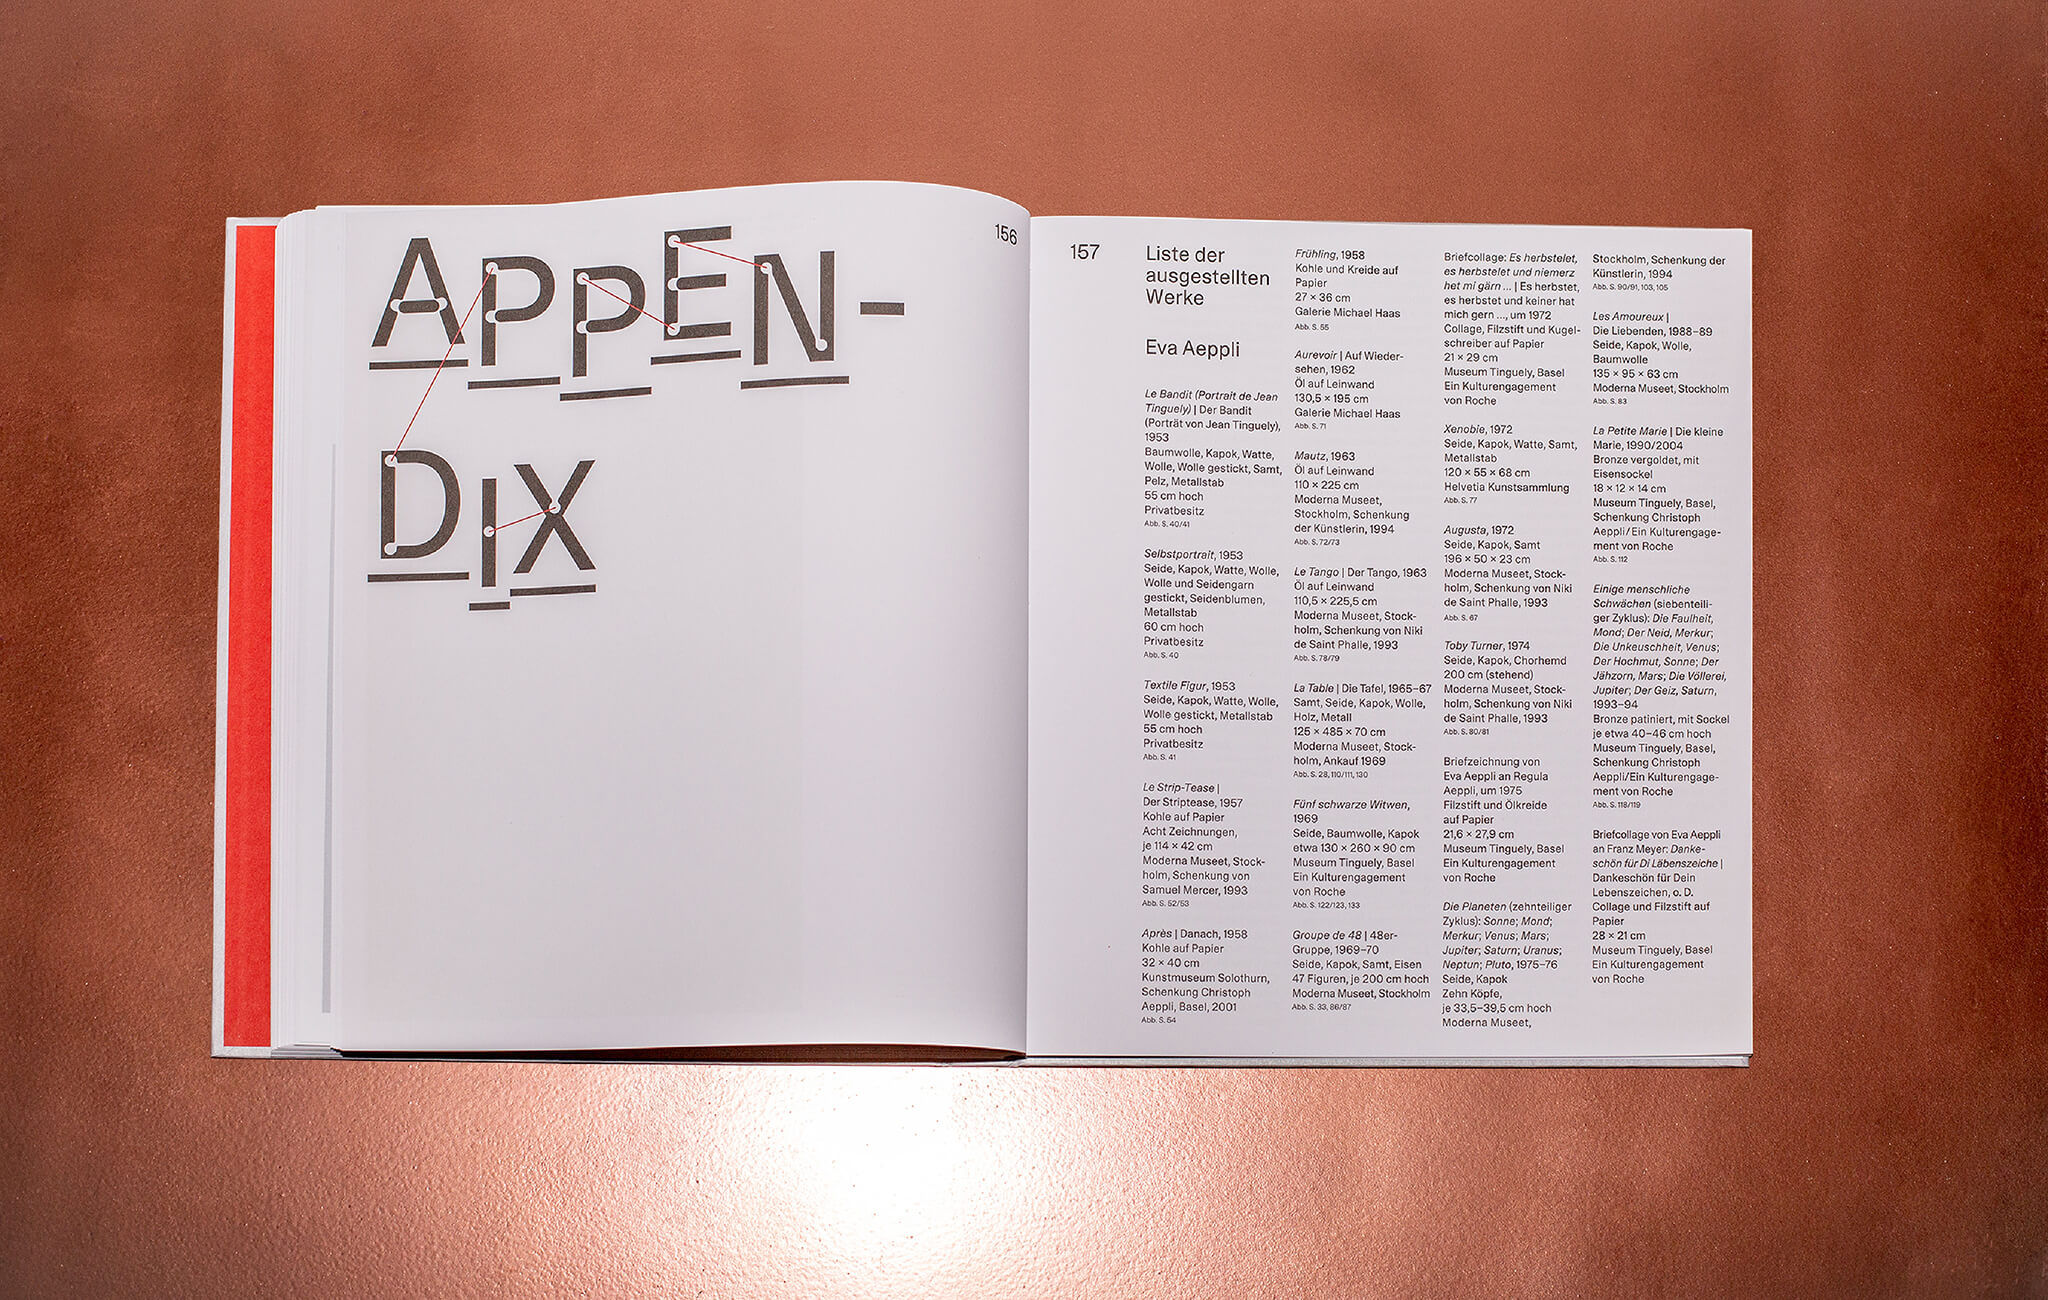 APPEN-
DIX
156
157
Liste der
ausgestellten
Werke
Eva Aeppli
Le Bandit (Portrait de Jean
Tinguely) | Der Bandit
(Porträt von Jean Tinguely),
1953
Baumwolle, Kapok, Watte,
Wolle, Wolle gestickt, Samt,
Pelz, Metallstab
55 cm hoch
Privatbesitz
Abb. S. 40/41
Selbstportrait, 1953
Seide, Kapok, Watte, Wolle,
Wolle und Seidengarn
gestickt, Seidenblumen,
Metallstab
60 cm hoch
Privatbesitz
Abb. S. 40
Textile Figur, 1953
Seide, Kapok, Watte, Wolle,
Wolle gestickt, Metallstab
55 cm hoch
Privatbesitz
Abb. S. 41
Le Strip-Tease |
Der Striptease, 1957
Kohle auf Papier
Acht Zeichnungen,
je 114 × 42 cm
Moderna Museet, Stock-
holm, Schenkung von
Samuel Mercer, 1993
Abb. S. 52/53
Après | Danach, 1958
Kohle auf Papier
32 × 40 cm
Kunstmuseum Solothurn,
Schenkung Christoph
Aeppli, Basel, 2001
Abb. S. 54
Frühling, 1958
Kohle und Kreide auf
Papier
27 × 36 cm
Galerie Michael Haas
Abb. S. 55
Aurevoir | Auf Wieder-
sehen, 1962
Öl auf Leinwand
130,5 × 195 cm
Galerie Michael Haas
Abb. S. 71
Mautz, 1963
Öl auf Leinwand
110 × 225 cm
Moderna Museet,
Stockholm, Schenkung
der Künstlerin, 1994
Abb. S. 72/73
Le Tango | Der Tango, 1963
Öl auf Leinwand
110,5 × 225,5 cm
Moderna Museet, Stock-
holm, Schenkung von Niki
de Saint Phalle, 1993
Abb. S. 78/79
La Table | Die Tafel, 1965–67
Samt, Seide, Kapok, Wolle,
Holz, Metall
125 × 485 × 70 cm
Moderna Museet, Stock-
holm, Ankauf 1969
Abb. S. 28, 110/111, 130
Fünf schwarze Witwen,
1969
Seide, Baumwolle, Kapok
etwa 130 × 260 × 90 cm
Museum Tinguely, Basel
Ein Kulturengagement
von Roche
Abb. S. 122/123, 133
Groupe de 48 | 48er-
Gruppe, 1969–70
Seide, Kapok, Samt, Eisen
47 Figuren, je 200 cm hoch
Moderna Museet, Stockholm
Abb. S. 33, 86/87
Briefcollage: Es herbstelet,
es herbstelet und niemerz
het mi gärn ... | Es herbstet,
es herbstet und keiner hat
mich gern ..., um 1972
Collage, Filzstift und Kugel-
schreiber auf Papier
21 × 29 cm
Museum Tinguely, Basel
Ein Kulturengagement
von Roche
Xenobie, 1972
Seide, Kapok, Watte, Samt,
Metallstab
120 × 55 × 68 cm
Helvetia Kunstsammlung
Abb. S. 77
Augusta, 1972
Seide, Kapok, Samt
196 × 50 × 23 cm
Moderna Museet, Stock-
holm, Schenkung von Niki
de Saint Phalle, 1993
Abb. S. 67
Toby Turner, 1974
Seide, Kapok, Chorhemd
200 cm (stehend)
Moderna Museet, Stock-
holm, Schenkung von Niki
de Saint Phalle, 1993
Abb. S. 80/81
Briefzeichnung von
Eva Aeppli an Regula
Aeppli, um 1975
Filzstift und Ölkreide
auf Papier
21,6 × 27,9 cm
Museum Tinguely, Basel
Ein Kulturengagement
von Roche
Die Planeten (zehnteiliger
Zyklus): Sonne; Mond;
Merkur; Venus; Mars;
Jupiter; Saturn; Uranus;
Neptun; Pluto, 1975–76
Seide, Kapok
Zehn Köpfe,
je 33,5–39,5 cm hoch
Moderna Museet,
Stockholm, Schenkung der
Künstlerin, 1994
Abb. S. 90/91, 103, 105
Les Amoureux |
Die Liebenden, 1988–89
Seide, Kapok, Wolle,
Baumwolle
135 × 95 × 63 cm
Moderna Museet, Stockholm
Abb. S. 83
La Petite Marie | Die kleine
Marie, 1990/2004
Bronze vergoldet, mit
Eisensockel
18 × 12 × 14 cm
Museum Tinguely, Basel,
Schenkung Christoph
Aeppli/Ein Kulturengage-
ment von Roche
Abb. S. 112
Einige menschliche
Schwächen (siebenteili-
ger Zyklus): Die Faulheit,
Mond; Der Neid, Merkur;
Die Unkeuschheit, Venus;
Der Hochmut, Sonne; Der
Jähzorn, Mars; Die Völlerei,
Jupiter; Der Geiz, Saturn,
1993–94
Bronze patiniert, mit Sockel
je etwa 40–46 cm hoch
Museum Tinguely, Basel,
Schenkung Christoph
Aeppli/Ein Kulturengage-
ment von Roche
Abb. S. 118/119
Briefcollage von Eva Aeppli
an Franz Meyer: Danke-
schön für Di Läbenszeiche |
Dankeschön für Dein
Lebenszeichen, o. D.
Collage und Filzstift auf
Papier
28 × 21 cm
Museum Tinguely, Basel
Ein Kulturengagement
von Roche